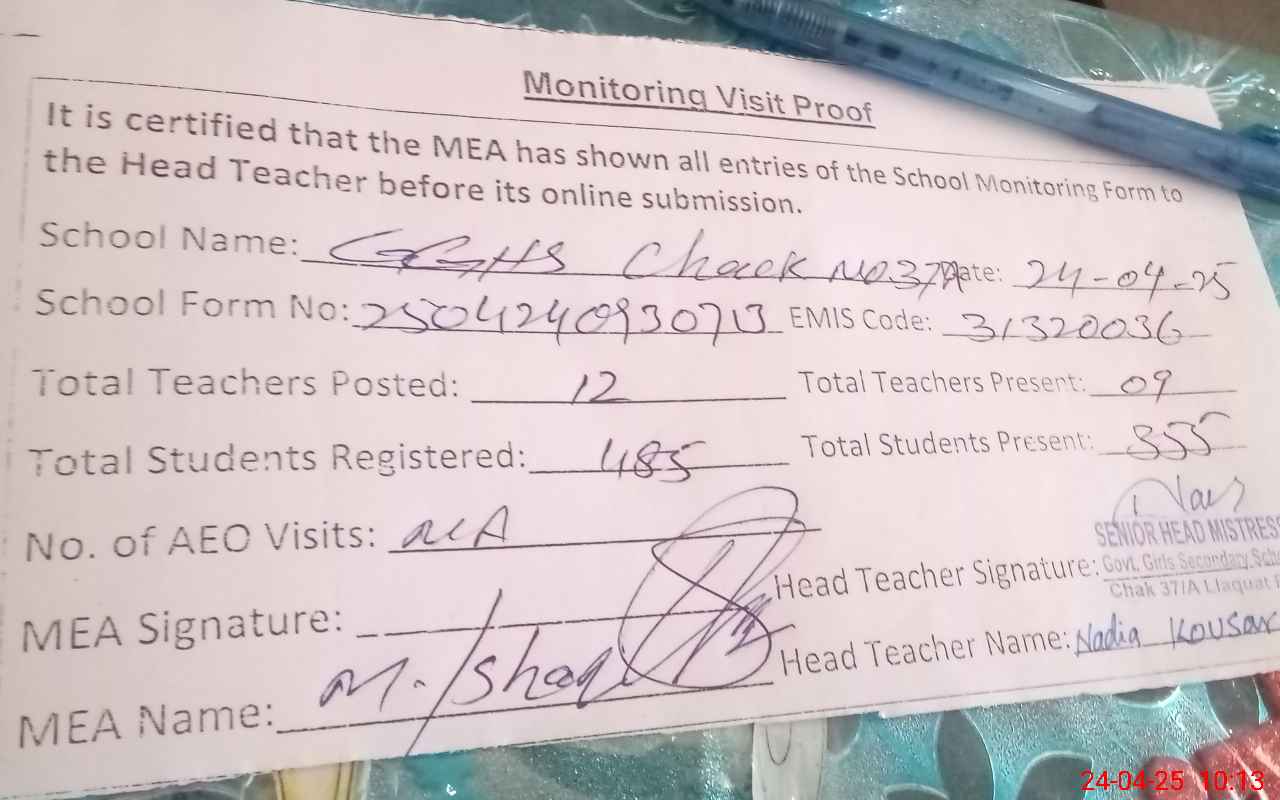 Monitoring Visit Proof
It is certified that the MEA has shown all entries of the School Monitoring Form to
the Head Teacher before its online submission.
School Name: GGHS Chack No 37A Date: 24-04-25
School Form No: EMIS Code: 31320036
Total Teachers Posted: 12 Total Teachers Present: 09
Total Students Registered: 485 Total Students Present: 355
No. of AEO Visits:
SENIOR HEAD MISTRESS
MEA Signature: Head Teacher Signature: Govt. Girls Secondary Sch
Chak 37/A Liaquat
MEA Name: M. Ishaq Head Teacher Name: Nadia Kousar
24-04-25 10:13